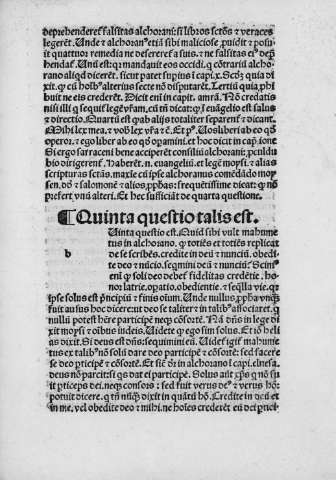 deprehenderet̃ falsitas alchorani: si libros sctõs ⁊ veraces
legerẽt. Unde ⁊ alchoranꝰ etiã sibi maliciose ꝓuidit ⁊ posu
it quattuor remedia ne desereret̃ a suis: ⁊ ne falsitas eiꝰ dep̃
hendat̃. Unũ est: qꝛ mandauit eos occidi. q̃ cõtrariũ alchc
rano aliqd dicerẽt. sicut patet supins ĩ capi. x. Scd̃z quia di
xit. ꝙ cũ hoĩbꝰ alterius secte nõ disputarẽt. Tertiũ quia, phi
buit ne eis crederẽt. Dicit eni in capi. amrã. Nõ credatis
nisi illi q̃ sequit̃ legẽ vr̃am. cũ tñ dicat: ꝙ ĩ euãgelio est salus
⁊ directio. Quartũ est q̃ ab alijs totaliter separent̃ ⁊ dicant.
Mihi lex mea. ⁊ vobꝭ lex vr̃a ⁊ c̃. Et pᵒ. Uos liberi ab eo qd̃
operor. ⁊ ego liber ab eo qd̃ opamini. et hoc dicat in capi iont
Si ergo sarraceni bene acciperẽt consiliũ alchorani: ꝓculdu
bio dirigerent̃. Haberẽt. n. euangeliũ. et legẽ moysi. ⁊ alias
scripturas sctãs. maxĩe cũ ipse alchoranus comẽdãdo moy
sen. dõ ⁊ salomonẽ ⁊ alios, pphãs: frequẽtissime dicat: ꝙ nõ
presert̃ vnũ alteri. Et hec sufficiãt de quarta questione.
¶ Quinta questio talis est.
Uinta questio est. Quid sibi vult mahume
tus in alchorano. ꝙ totiẽs et totiẽs replicat
b de se scribẽs. credite in deũ ⁊ nunciũ. obedite
deo ⁊ nũcio. seq̃mini deũ ⁊ nunciũ: Scim
enĩ ꝙ soli deo debet̃ fidelitas credẽtie. ho
nor latrie. opatio. obedientie. ⁊ seq̃lla vie. qꝛ
ipse solus est p̃ncipiũ ⁊ finis oĩum. Unde nullus, ppha vnq̃
fuit ausus hoc dicere: ut deo se taliter ⁊ in talibꝰ associaret. q̃
nullũ potest hr̃e participẽ neqꝫ cõsortẽ. Nã dñs in lege di
xit moysi ⁊ oĩbus iudeis. Uidete ꝙ ego sim solus. Et iõ heli
as dixit. Si deus est dñs: sequimini eũ. Uidet̃ igit̃ mahume
tus ex talibꝰ nõ soli dare deo participẽ ⁊ cõsortẽ: sed facere
se deo pticipẽ ⁊ cõsortẽ. Et sic̃ dr̃ in alchorano ĩ capi. elnesa.
deus nõ parcit: si qs dat ei participẽ. Solus aũt xp̃s q̃ nõ sp̃
it pticeps dei. neqꝫ consors: sed fuit verus deꝰ ⁊ verus hõ:
potuit dicere. q̃ tñ nũq̃ dixit in quãtũ hõ. Credite in deũ et
in me, vel obedite deo ⁊ mihi. ne hoĩes crederẽt eũ dei p̃nci